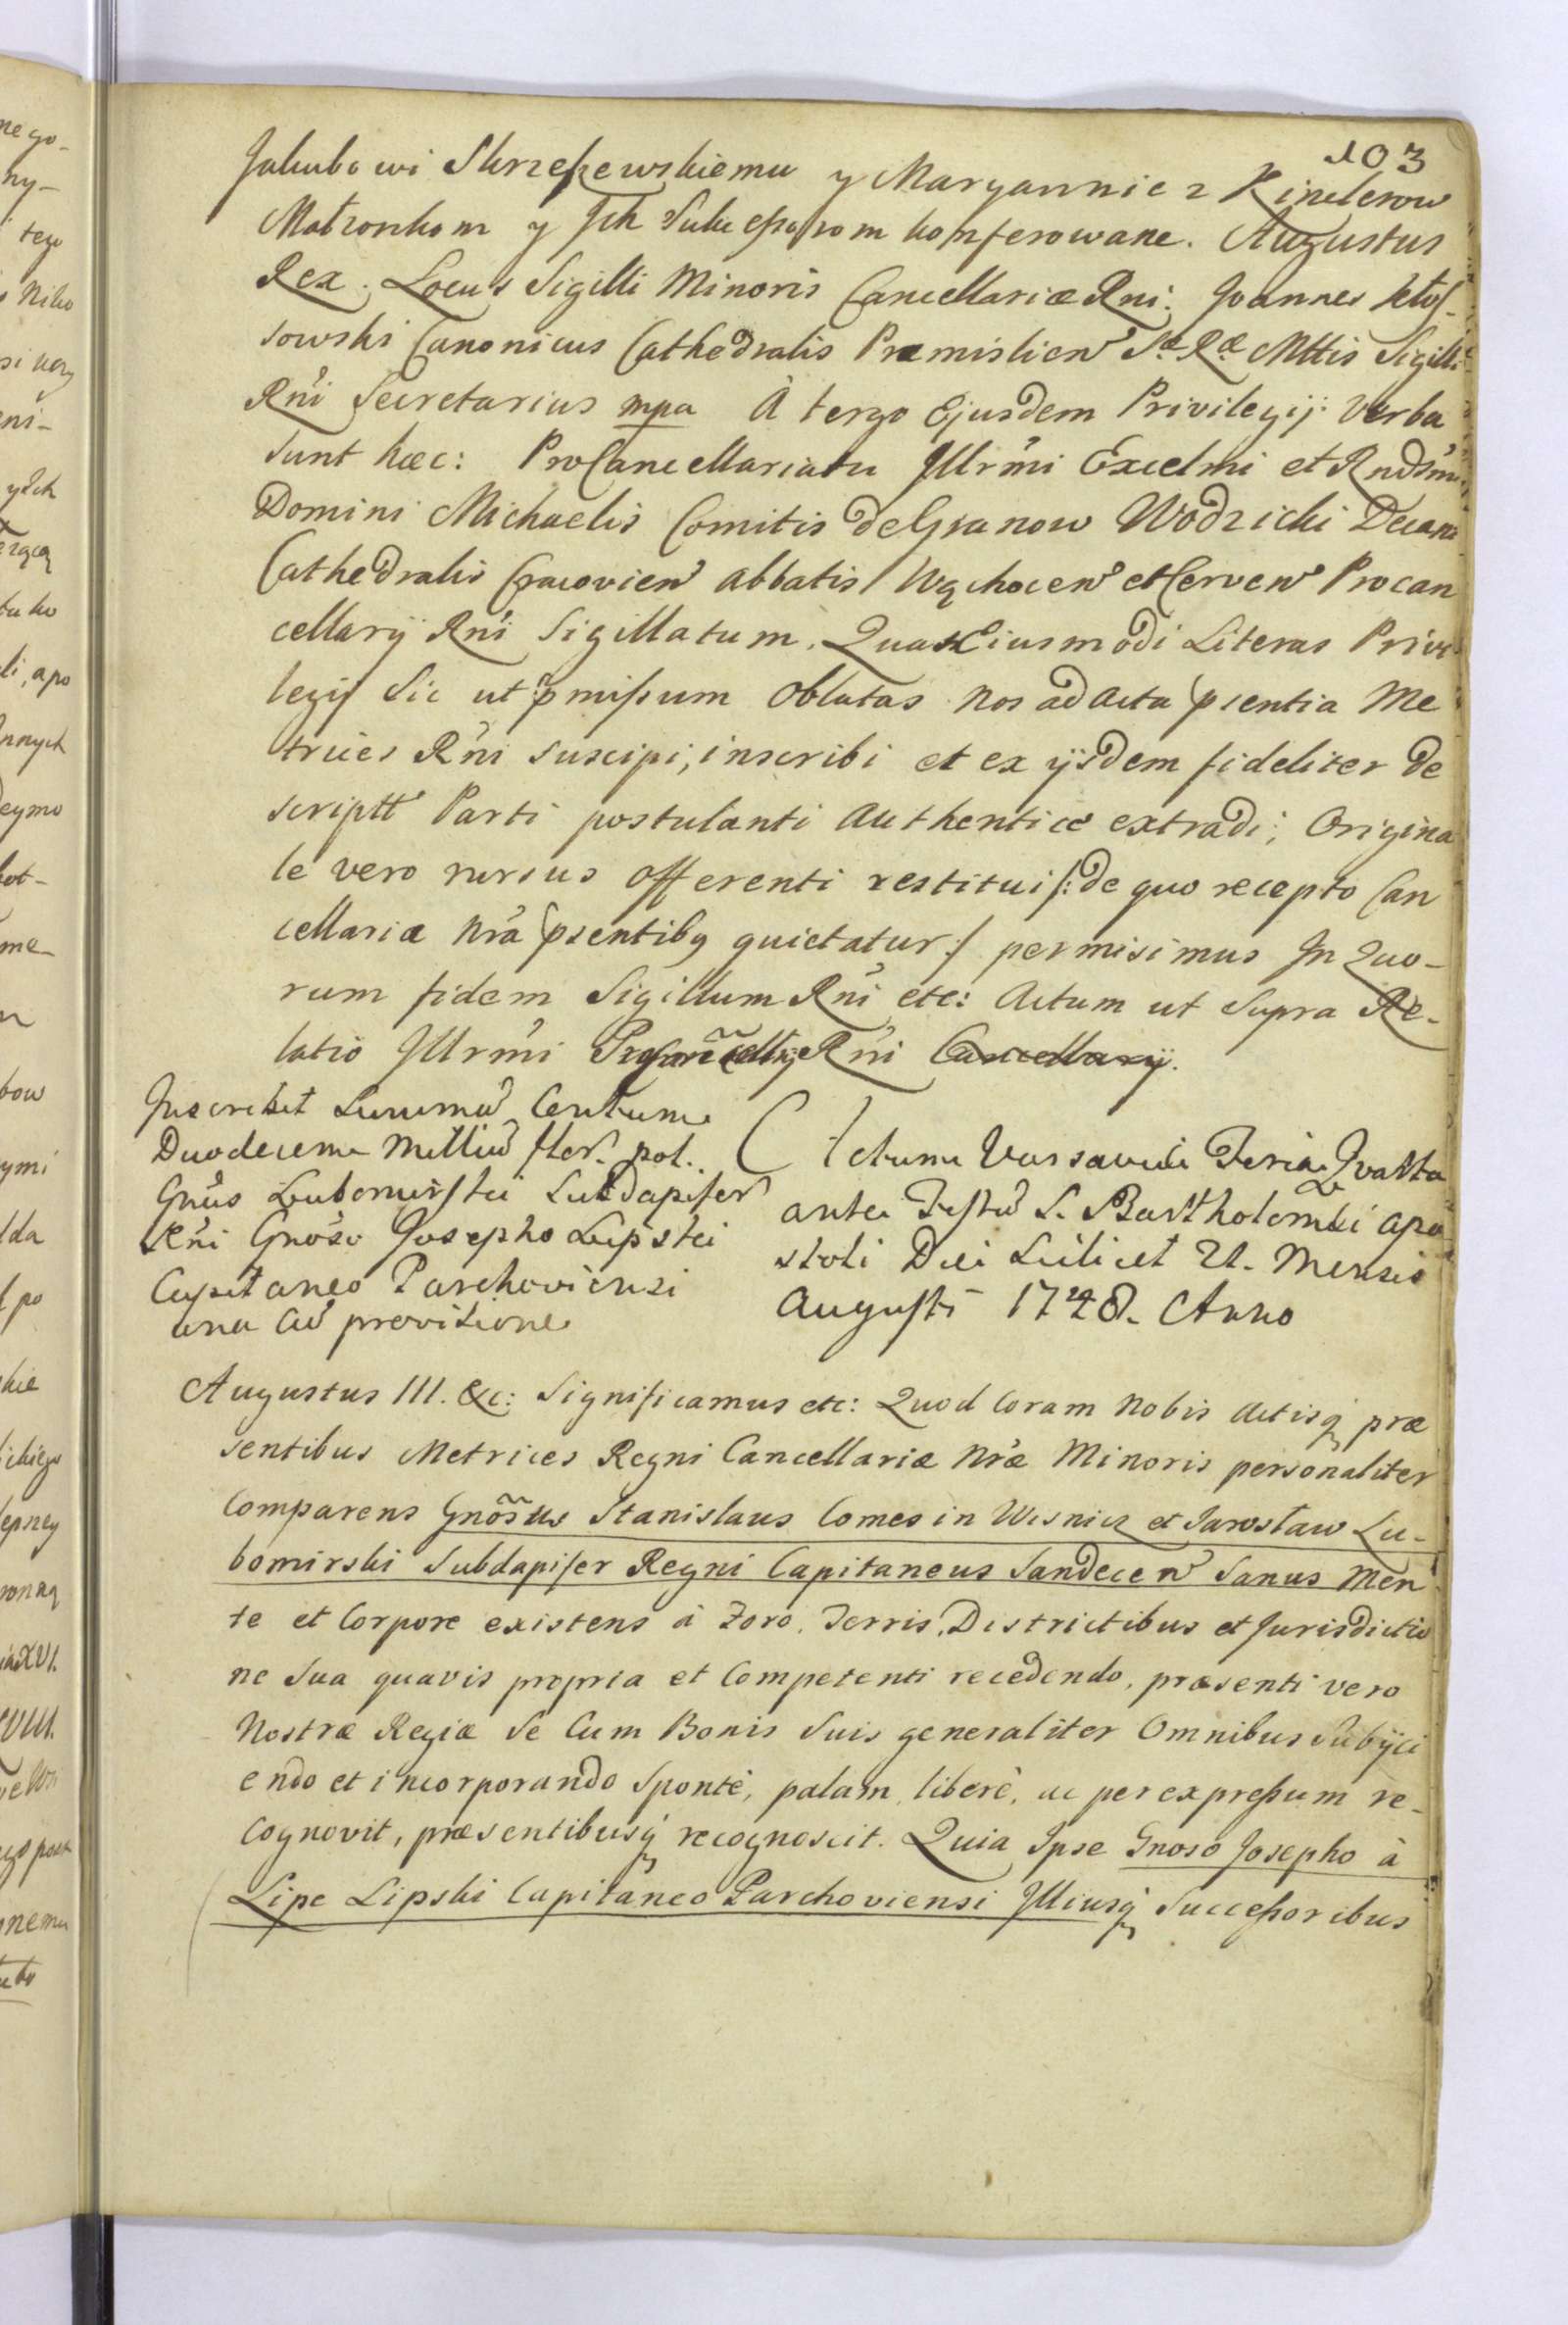 103
Jakubowi Skrzeszewskiemu y Maryannie z Kinderow
Małzonkom y Jch Sukcessorom konferowane. Augustus
Rex. Locus Sigilli Minoris Cancellariæ Rni: Joannes Kłos-
sowski Canonicus Cathedralis Præmislien Sæ Ræ Mttis Sigilli
Rni Secretarius mpa A tergo Ejusdem Privilegij Verba
sunt hæc: ProCancellariatu Jllrmi Excelmi et Rndsmi
Domini Michaelis Comitis de Granow Wodzicki Decani
Cathedralis Cracovien Abbatis Wąchocen et Cerven Procan
cellarij Rni Sigillatum. Quas Eiusmodi Literas Privi
legij Sic ut pmissum Oblatas Nos ad Acta psentia Me
trices Rni suscipi, inscribi et ex ijsdem fideliter de
scriptt Parti postulanti Authentice extradi; Origina
le vero rursus Offerenti restitui /: de quo recepto Can
cellaria Nra psentibq quietatur :/ permisimus Jn Quo-
rum fidem Sigillum Rni etc: Actum ut Supra Re-
latio Jllrmi Procancellrij Rni Cancellarij.
Jnscribit Summa Centum
Duodecem Milliu flor. pol.
Gnus Lubomirski Subdapifer
Rni Gnoso Josepho Lipski
Capitaneo Parchoviensi
una cu provisione
Actum Varsaviæ Feria Qvarta
ante Festu S. Bartholomæi Apo
stoli Diei Scilicet 21. Mensis
Augusti 1748. Anno
Augustus III. &c: Significamus etc: Quod Coram Nobis Actisq præ
sentibus Metrices Regni Cancellariæ Nræ Minoris personaliter
Comparens Gnosus Stanislaus Comes in Wisnicz et Jarosław Lu-
bomirski Subdapifer Regni Capitaneus Sandecen Sanus Men
te et Corpore existens à Foro, Terris, Districtibus et Jurisdictio
ne Sua quavis propria et Competenti recedendo, præsenti vero
Nostræ Regiæ Se Cum Bonis Suis generaliter Omnibus Subijci
endo et incorporando Sponte, palam, libere, ac per expressum re-
cognovit, præsentibusq recognoscit. Quia Ipse Gnoso Josepho à
Lipe Lipski Capitaneo Parchoviensi Jlliusq Successoribus